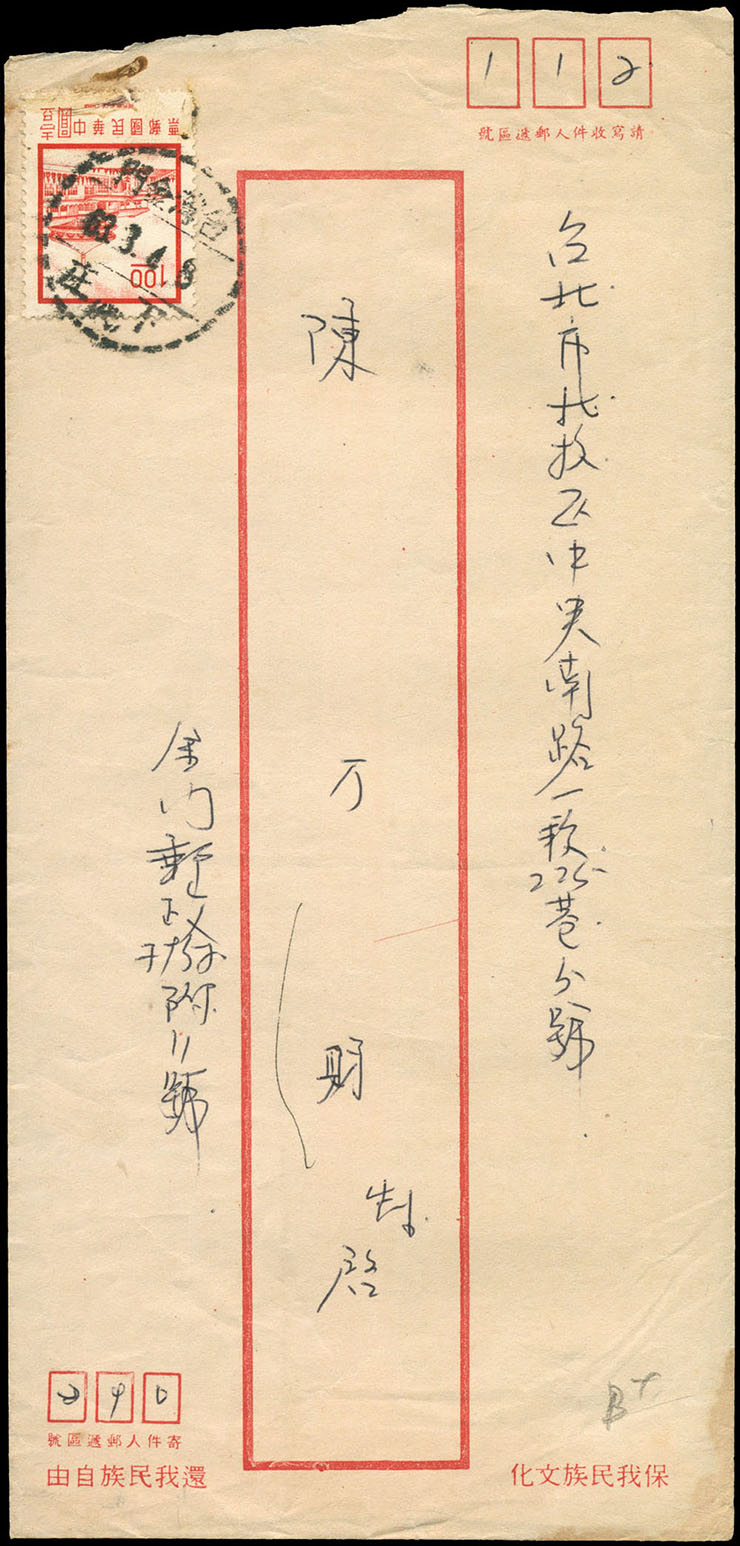 112
請寫收件人郵遞區號
台北市北投区中央南路一段225巷 号號
陳万財
啓
金門郵政 附11號
中華民國郵票
壹圓
1.00
台灣金門
63.3.4.8
下
890
寄件人郵遞區號
還我民族自由
保我民族文化
B+